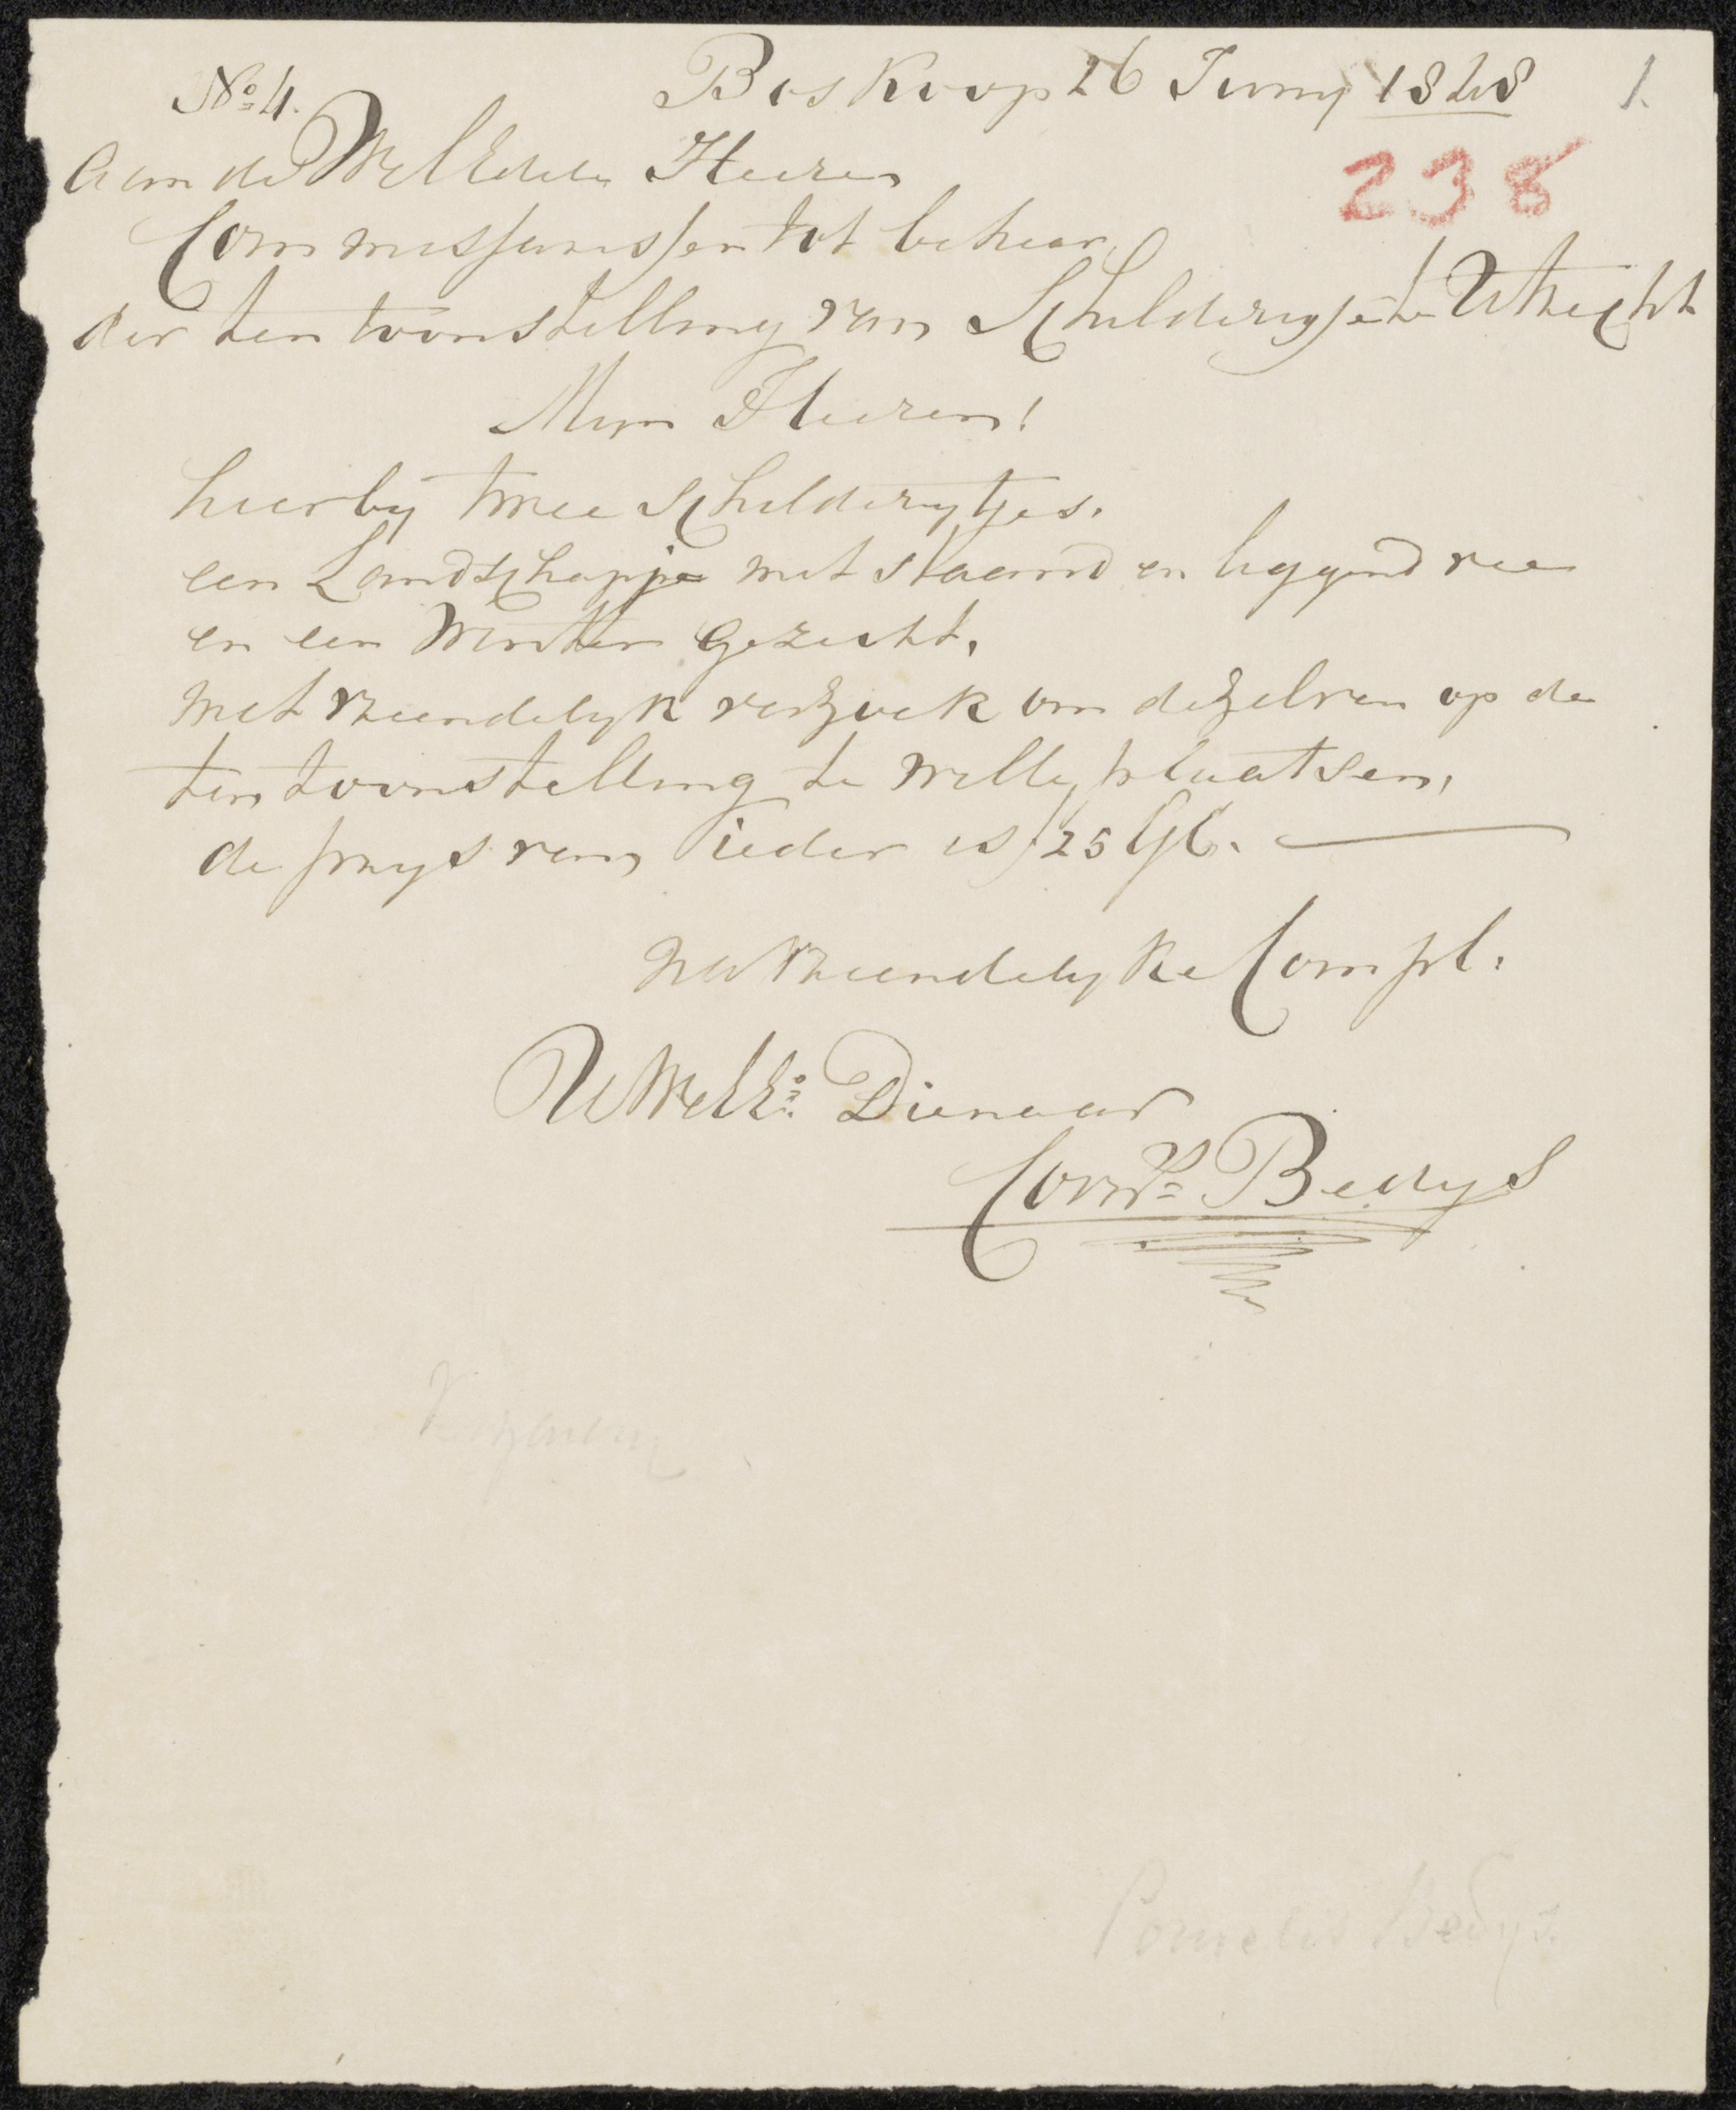 No 4. Boskoop 26 Juny 1828 1.
238
Aan de WelEdele Heeren
Commissarissen tot beheer
der ten toonstelling van Schilderyen te Utrecht
Myn Heeren!
hierby twee Schilderytjes.
een Landschapje met staand en liggend vee
en een Winter gezicht.
met vriendelyk verzoek om dezelven op de
ten toonstelling te wille plaatsen,
de prys van ieder is ƒ 25 Gl.
na vriendelyke Compl.
UWelE: Dienaar
Corns Bedys
Cornelis Bedys.